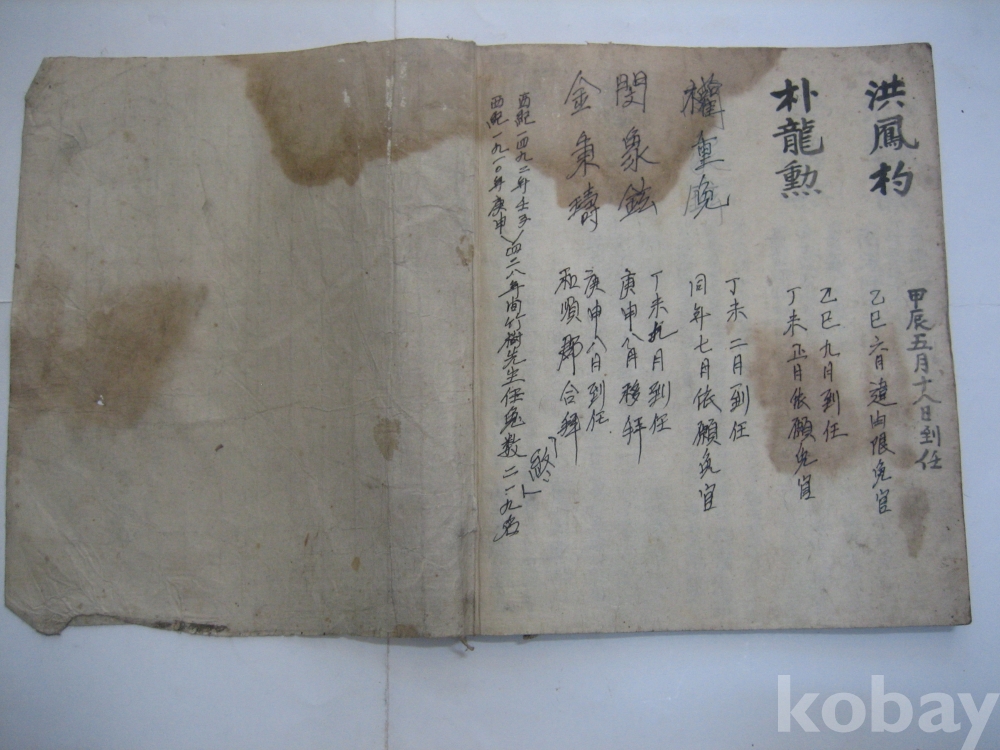 洪鳳杓
甲辰五月十八日到任
乙巳六月違由限免官
朴龍勲
乙巳九月到任
丁未正月依願免官
權重
丁未二月到任
同年七月依願免官
閔象鉉
丁未九月到任
庚申八月移拜
金秉璹
庚申八月到任
和順郡合拜
終
西紀一四九二年壬子
西紀一九一〇年庚申
四二八年间竹樹先生任免数二一九名
kobay